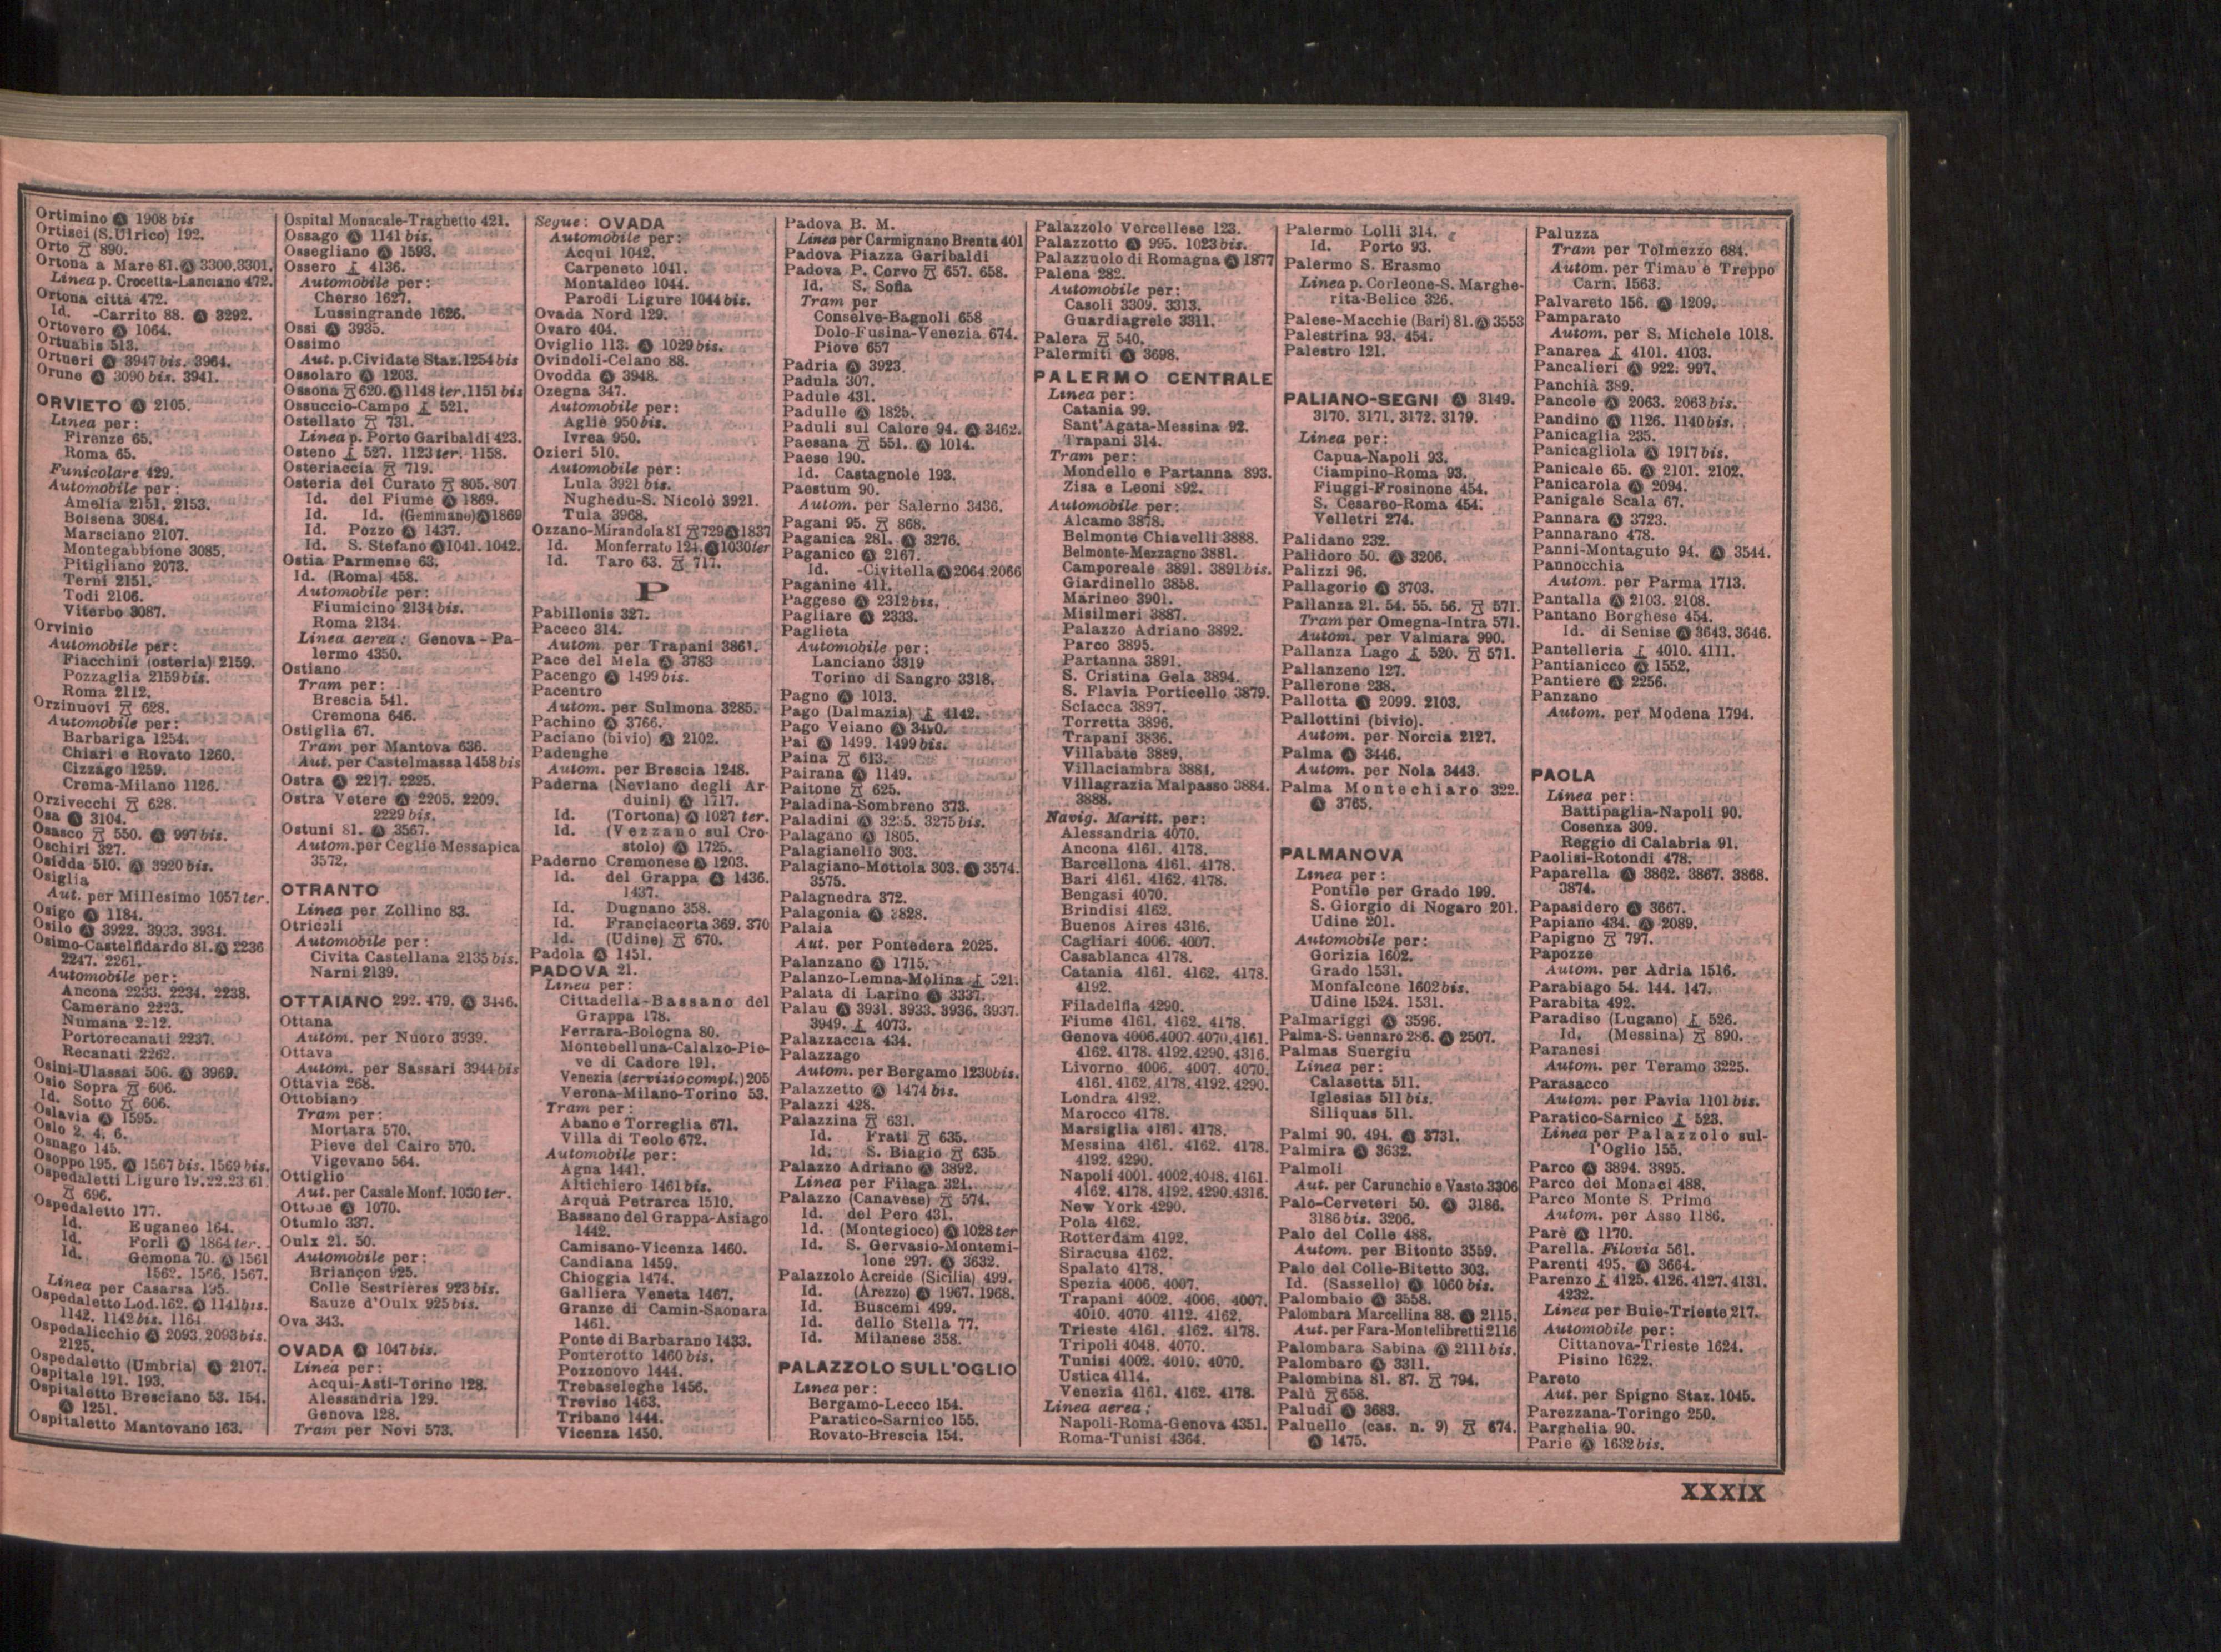 Ortimino Ⓐ 1908 bis
Ortisei (S.Ulrico) 192.
Orto 890.
Ortona a Mare 81. Ⓐ 3300.3301.
Linea p. Crocetta-Lanciano 472.
Ortona città 472.
Id. -Carrito 88. Ⓐ 3292.
Ortovero Ⓐ 1064.
Ortuabis 513.
Ortueri Ⓐ 3947 bis. 3964.
Orune Ⓐ 3090 bis. 3941.
ORVIETO Ⓐ 2105.
Linea per:
Firenze 65.
Roma 65.
Funicolare 429.
Automobile per:
Amelia 2151. 2153.
Bolsena 3084.
Marsciano 2107.
Montegabbione 3085.
Pitigliano 2073.
Terni 2151.
Todi 2106.
Viterbo 3087.
Orvinio
Automobile per:
Fiacchini (osteria) 2159.
Pozzaglia 2159 bis.
Roma 2112.
Orzinuovi 628.
Automobile per:
Barbariga 1254.
Chiari e Rovato 1260.
Cizzago 1259.
Crema-Milano 1126.
Orzivecchi 628.
Osa Ⓐ 3104.
Osasco 550. Ⓐ 997 bis.
Oschiri 327.
Osidda 510. Ⓐ 3920 bis.
Osiglia
Aut. per Millesimo 1057 ter.
Osigo Ⓐ 1184.
Osilo Ⓐ 3922. 3933. 3934.
Osimo-Castelfidardo 81. Ⓐ 2236
2247. 2261.
Automobile per:
Ancona 2233. 2234. 2238.
Camerano 2223.
Numana
Portorecanati 2237.
Recanati 2262.
Osini-Ulassai 506. Ⓐ 3969.
Osio Sopra 606.
Id. Sotto 606.
Oslavia Ⓐ 1595.
Oslo 2. 4. 6.
Osnago 145.
Osoppo 195. Ⓐ 1567 bis. 1569 bis.
Ospedaletti Ligure 19.22.23 61.
696.
Ospedaletto 177.
Id. Euganeo 164.
Id. Forlì Ⓐ 1864 ter.
Id. Gemona 70. Ⓐ 1561
1562. 1566. 1567.
Linea per Casarsa 195.
Ospedaletto Lod. 162. Ⓐ 1141 bis.
1142. 1142 bis. 1164.
Ospedalicchio Ⓐ 2093. 2093 bis.
2125.
Ospedaletto (Umbria) Ⓐ 2107.
Ospitale 191. 193.
Ospitaletto Bresciano 53. 154.
Ⓐ 1251.
Ospitaletto Mantovano 163.
Ospital Monacale-Traghetto 421.
Ossago Ⓐ 1141 bis.
Ossegliano Ⓐ 1593.
Ossero 4136.
Automobile per:
Cherso 1627.
Lussingrande 1626.
Ossi Ⓐ 3935.
Ossimo
Aut. p. Cividate Staz. 1254 bis
Ossolaro Ⓐ 1203.
Ossona 620. Ⓐ 1148 ter. 1151 bis
Ossuccio-Campo 521.
Ostellato 731.
Linea p. Porto Garibaldi 423.
Osteno 527. 1123 ter. 1158.
Osteriaccia 719.
Osteria del Curato 805. 807
Id. del Fiume Ⓐ 1869.
Id. Id. (Gemmano) Ⓐ 1869
Id. Pozzo Ⓐ 1437.
Id. S. Stefano Ⓐ 1041. 1042.
Ostia Parmense 63.
Id. (Roma) 458.
Automobile per:
Fiumicino 2134 bis.
Roma 2134.
Linea aerea: Genova - Pa-
lermo 4350.
Ostiano
Tram per:
Brescia 541.
Cremona 646.
Ostiglia 67.
Tram per Mantova 636.
Aut. per Castelmassa 1458 bis
Ostra Ⓐ 2217. 2225.
Ostra Vetere Ⓐ 2205. 2209.
2229 bis.
Ostuni 81. Ⓐ 3567.
Autom. per Ceglie Messapica
3572.
OTRANTO
Linea per Zollino 83.
Otricoli
Automobile per:
Civita Castellana 2135 bis.
Narni 2139.
OTTAIANO 292. 479. Ⓐ 3446.
Ottana
Autom. per Nuoro 3939.
Ottava
Autom. per Sassari 3944 bis
Ottavia 268.
Ottobiano
Tram per:
Mortara 570.
Pieve del Cairo 570.
Vigevano 564.
Ottiglio
Aut. per Casale Monf. 1030 ter.
Ottone Ⓐ 1070.
Otumlo 337.
Oulx 21. 50.
Automobile per:
Briançon 925.
Colle Sestrieres 923 bis.
Sauze d'Oulx 925 bis.
Ova 343.
OVADA Ⓐ 1047 bis.
Linea per:
Acqui-Asti-Torino 128.
Alessandria 129.
Genova 128.
Tram per Novi 573.
Segue: OVADA
Automobile per:
Acqui 1042.
Carpeneto 1041.
Montaldeo 1044.
Parodi Ligure 1044 bis.
Ovada Nord 129.
Ovaro 404.
Oviglio 113. Ⓐ 1029 bis.
Ovindoli-Celano 88.
Ovodda Ⓐ 3948.
Ozegna 347.
Automobile per:
Agliè 950 bis.
Ivrea 950.
Ozieri 510.
Automobile per:
Lula 3921 bis.
Nughedu-S. Nicolò 3921.
Tula 3968.
Ozzano-Mirandola 81 729 Ⓐ 1837
Id. Monferrato 124. Ⓐ 1030 ter
Id. Taro 63. 717.
P
Pabillonis 327.
Paceco 314.
Autom. per Trapani 3861.
Pace del Mela Ⓐ 3783
Pacengo Ⓐ 1499 bis.
Pacentro
Autom. per Sulmona 3285.
Pachino Ⓐ 3766.
Paciano (bivio) Ⓐ 2102.
Padenghe
Autom. per Brescia 1248.
Paderna (Neviano degli Ar-
duini) Ⓐ 1717.
Id. (Tortona) Ⓐ 1027 ter.
Id. (Vezzano sul Cro-
stolo) Ⓐ 1725.
Paderno Cremonese Ⓐ 1203.
Id. del Grappa Ⓐ 1436.
1437.
Id. Dugnano 358.
Id. Franciacorta 369. 370
Id. (Udine) 670.
Padola Ⓐ 1451.
PADOVA 21.
Linea per:
Cittadella-Bassano del
Grappa 178.
Ferrara-Bologna 80.
Montebelluna-Calalzo-Pie-
ve di Cadore 191.
Venezia (servizio compl.) 205
Verona-Milano-Torino 53.
Tram per:
Abano e Torreglia 671.
Villa di Teolo 672.
Automobile per:
Agna 1441.
Altichiero 1461 bis.
Arquà Petrarca 1510.
Bassano del Grappa-Asiago
1442.
Camisano-Vicenza 1460.
Candiana 1459.
Chioggia 1474.
Galliera Veneta 1467.
Granze di Camin-Saonara
1461.
Ponte di Barbarano 1433.
Ponterotto 1460 bis.
Pozzonovo 1444.
Trebaseleghe 1456.
Treviso 1463.
Tribano 1444.
Vicenza 1450.
Padova B. M.
Linea per Carmignano Brenta 401
Padova Piazza Garibaldi
Padova P. Corvo 657. 658.
Id. S. Sofia
Tram per
Conselve-Bagnoli 658
Dolo-Fusina-Venezia 674.
Piove 657
Padria Ⓐ 3923.
Padula 307.
Padule 431.
Padulle Ⓐ 1825.
Paduli sul Calore 94. Ⓐ 3462.
Paesana 551. Ⓐ 1014.
Paese 190.
Id. Castagnole 193.
Paestum 90.
Autom. per Salerno 3436.
Pagani 95. 868.
Paganica 281. Ⓐ 3276.
Paganico Ⓐ 2167.
Id. -Civitella Ⓐ 2064.2066
Paganine 411.
Paggese Ⓐ 2312 bis.
Pagliare Ⓐ 2333.
Paglieta
Automobile per:
Lanciano 3319
Torino di Sangro 3318.
Pagno Ⓐ 1013.
Pago (Dalmazia) 4142.
Pago Veiano Ⓐ
Pai Ⓐ 1499. 1499 bis.
Paina 613.
Pairana Ⓐ 1149.
Paitone 625.
Paladina-Sombreno 373.
Paladini Ⓐ 3275 bis.
Palagano Ⓐ 1805.
Palagianello 303.
Palagiano-Mottola 303. Ⓐ 3574.
3575.
Palagnedra 372.
Palagonia Ⓐ 3828.
Palaia
Aut. per Pontedera 2025.
Palanzano Ⓐ 1715.
Palanzo-Lemna-Molina 521.
Palata di Larino Ⓐ 3337.
Palau Ⓐ 3931. 3933. 3936. 3937.
3949. 4073.
Palazzaccia 434.
Palazzago
Autom. per Bergamo 1230 bis.
Palazzetto Ⓐ 1474 bis.
Palazzi 428.
Palazzina 631.
Id. Frati 635.
Id. S. Biagio 635
Palazzo Adriano Ⓐ 3892.
Linea per Filaga 324.
Palazzo (Canavese) 574.
Id. del Pero 431.
Id. (Montegioco) Ⓐ 1028 ter
Id. S. Gervasio-Montemi-
lone 297. Ⓐ 3632.
Palazzolo Acreide (Sicilia) 499.
Id. (Arezzo) Ⓐ 1967. 1968.
Id. Buscemi 499.
Id. dello Stella 77.
Id. Milanese 358.
PALAZZOLO SULL'OGLIO
Linea per:
Bergamo-Lecco 154.
Paratico-Sarnico 155.
Rovato-Brescia 154.
Palazzolo Vercellese 123.
Palazzotto Ⓐ 995. 1023 bis.
Palazzuolo di Romagna Ⓐ 1877
Palena 282.
Automobile per:
Casoli 3309. 3313.
Guardiagrele 3311.
Palera 540.
Palermiti Ⓐ 3698.
PALERMO CENTRALE
Linea per:
Catania 99.
Sant'Agata-Messina 92.
Trapani 314.
Tram per:
Mondello e Partanna 893.
Zisa e Leoni 892.
Automobile per:
Alcamo 3878.
Belmonte Chiavelli 3888.
Belmonte-Mezzagno 3881.
Camporeale 3891. 3891 bis.
Giardinello 3858.
Marineo 3901.
Misilmeri 3887.
Palazzo Adriano 3892.
Parco 3895.
Partanna 3891.
S. Cristina Gela 3894.
S. Flavia Porticello 3879.
Sciacca 3897.
Torretta 3896.
Trapani 3836.
Villabate 3889.
Villaciambra 3884.
Villagrazia Malpasso 3884.
3888.
Navig. Maritt. per:
Alessandria 4070.
Ancona 4161. 4178.
Barcellona 4161. 4178.
Bari 4161. 4162. 4178.
Bengasi 4070.
Brindisi 4162.
Buenos Aires 4316.
Cagliari 4006. 4007.
Casablanca 4178.
Catania 4161. 4162. 4178.
4192.
Filadelfia 4290.
Fiume 4161. 4162. 4178.
Genova 4006.4007.4070.4161.
4162. 4178. 4192.4290. 4316.
Livorno 4006. 4007. 4070.
4161. 4162. 4178. 4192. 4290.
Londra 4192.
Marocco 4178.
Marsiglia 4161. 4178.
Messina 4161. 4162. 4178.
4192. 4290.
Napoli 4001. 4002.4048. 4161.
4162. 4178. 4192. 4290.4316.
New York 4290.
Pola 4162.
Rotterdam 4192.
Siracusa 4162.
Spalato 4178.
Spezia 4006. 4007.
Trapani 4002. 4006. 4007.
4010. 4070. 4112. 4162.
Trieste 4161. 4162. 4178.
Tripoli 4048. 4070.
Tunisi 4002. 4010. 4070.
Ustica 4114.
Venezia 4161. 4162. 4178.
Linea aerea:
Napoli-Roma-Genova 4351.
Roma-Tunisi 4364.
Palermo Lolli 314.
Id. Porto 93.
Palermo S. Erasmo
Linea p. Corleone-S. Marghe-
rita-Belice 326.
Palese-Macchie (Bari) 81. Ⓐ 3553
Palestrina 93. 454.
Palestro 121.
PALIANO-SEGNI Ⓐ 3149.
3170. 3171. 3172. 3179.
Linea per:
Capua-Napoli 93.
Ciampino-Roma 93.
Fiuggi-Frosinone 454.
S. Cesareo-Roma 454.
Velletri 274.
Palidano 232.
Palidoro 50. Ⓐ 3206.
Palizzi 96.
Pallagorio Ⓐ 3703.
Pallanza 21. 54. 55. 56. 571.
Tram per Omegna-Intra 571.
Autom. per Valmara 990.
Pallanza Lago 520. 571.
Pallanzeno 127.
Pallerone 238.
Pallotta Ⓐ 2099. 2103.
Pallottini (bivio).
Autom. per Norcia 2127.
Palma Ⓐ 3446.
Autom. per Nola 3443.
Palma Montechiaro 322.
Ⓐ 3765.
PALMANOVA
Linea per:
Pontile per Grado 199.
S. Giorgio di Nogaro 201.
Udine 201.
Automobile per:
Gorizia 1602.
Grado 1531.
Monfalcone 1602 bis.
Udine 1524. 1531.
Palmariggi Ⓐ 3596.
Palma-S. Gennaro 286. Ⓐ 2507.
Palmas Suergiu
Linea per:
Calasetta 511.
Iglesias 511 bis.
Siliquas 511.
Palmi 90. 494. Ⓐ 3731.
Palmira Ⓐ 3632.
Palmoli
Aut. per Carunchio e Vasto 3306
Palo-Cerveteri 50. Ⓐ 3186.
3186 bis. 3206.
Palo del Colle 488.
Autom. per Bitonto 3559.
Palo del Colle-Bitetto 303.
Id. (Sassello) Ⓐ 1060 bis.
Palombaio Ⓐ 3558.
Palombara Marcellina 88. Ⓐ 2115.
Aut. per Fara-Montelibretti 2116
Palombara Sabina Ⓐ 2111 bis.
Palombaro Ⓐ 3311.
Palombina 81. 87. 794.
Palù 658.
Paludi Ⓐ 3683.
Paluello (cas. n. 9) 674.
Ⓐ 1475.
Paluzza
Tram per Tolmezzo 684.
Autom. per Timau e Treppo
Carn. 1563.
Palvareto 156. Ⓐ 1209.
Pamparato
Autom. per S. Michele 1018.
Panarea 4101. 4103.
Pancalieri Ⓐ 922. 997.
Panchià 389.
Pancole Ⓐ 2063. 2063 bis.
Pandino Ⓐ 1126. 1140 bis.
Panicaglia 235.
Panicagliola Ⓐ 1917 bis.
Panicale 65. Ⓐ 2101. 2102.
Panicarola Ⓐ 2094.
Panigale Scala 67.
Pannara Ⓐ 3723.
Pannarano 478.
Panni-Montaguto 94. Ⓐ 3544.
Pannocchia
Autom. per Parma 1713.
Pantalla Ⓐ 2103. 2108.
Pantano Borghese 454.
Id. di Senise Ⓐ 3643. 3646.
Pantelleria 4010. 4111.
Pantianicco Ⓐ 1552.
Pantiere Ⓐ 2256.
Panzano
Autom. per Modena 1794.
PAOLA
Linea per:
Battipaglia-Napoli 90.
Cosenza 309.
Reggio di Calabria 91.
Paolisi-Rotondi 478.
Paparella Ⓐ 3862. 3867. 3868.
3874.
Papasidero Ⓐ 3667.
Papiano 434. Ⓐ 2089.
Papigno 797.
Papozze
Autom. per Adria 1516.
Parabiago 54. 144. 147.
Parabita 492.
Paradiso (Lugano) 526.
Id. (Messina) 890.
Paranesi
Autom. per Teramo 3225.
Parasacco
Autom. per Pavia 1101 bis.
Paratico-Sarnico 523.
Linea per Palazzolo sul-
l'Oglio 155.
Parco Ⓐ 3894. 3895.
Parco dei Monaci 488.
Parco Monte S. Primo
Autom. per Asso 1186.
Parè Ⓐ 1170.
Parella. Filovia 561.
Parenti 495. Ⓐ 3664.
Parenzo 4125. 4126. 4127. 4131.
4232.
Linea per Buie-Trieste 217.
Automobile per:
Cittanova-Trieste 1624.
Pisino 1622.
Pareto
Aut. per Spigno Staz. 1045.
Parezzana-Toringo 250.
Parghelia 90.
Parie Ⓐ 1632 bis.
XXXIX